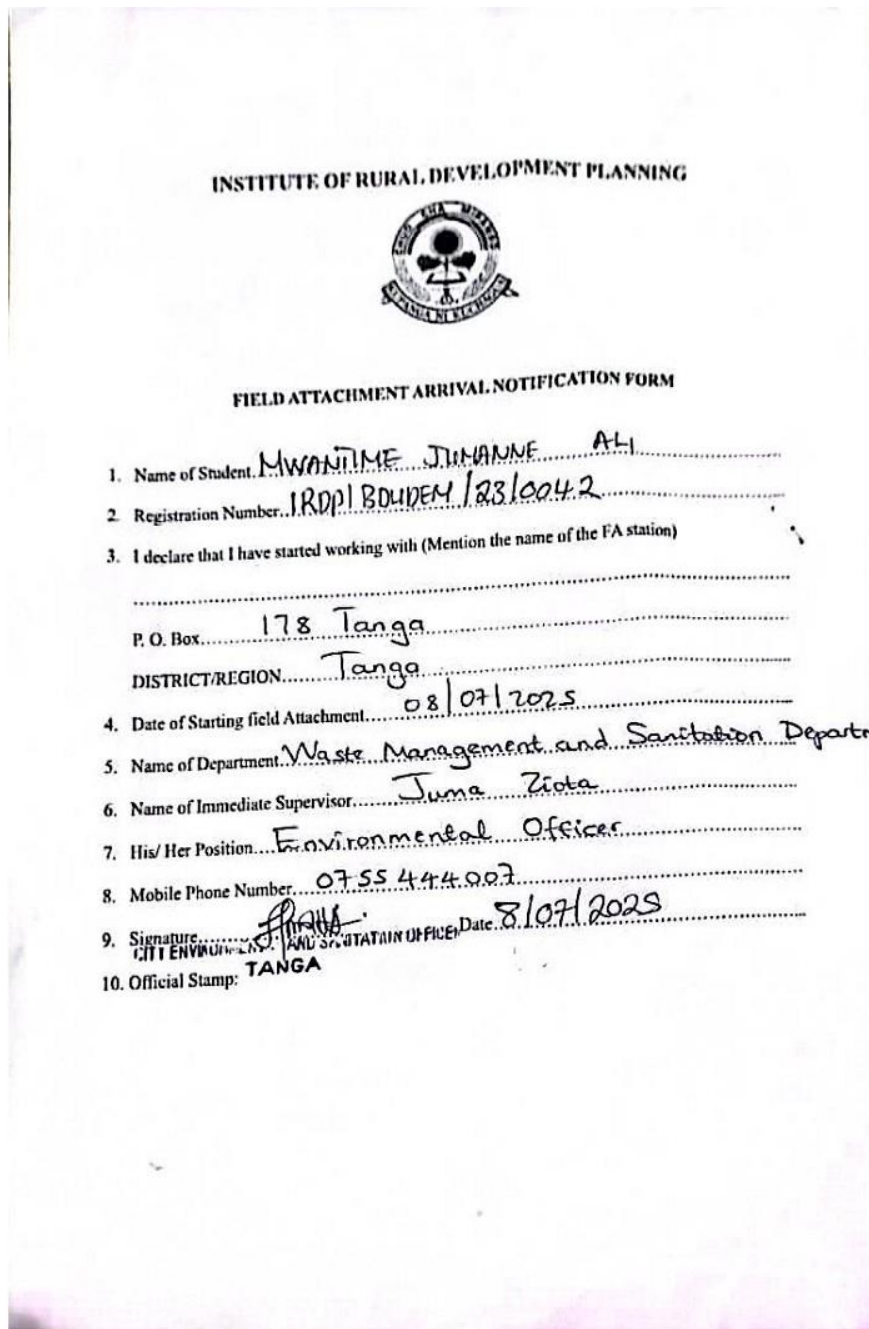 INSTITUTE OF RURAL DEVELOPMENT PLANNING
CHUO CHA MIPANGO
KUPANGA NI KUCHAGUA
FIELD ATTACHMENT ARRIVAL NOTIFICATION FORM
1. Name of Student MWANTIME JUMANNE ALI
2. Registration Number IRDP/BDUDEM/23/0042
3. I declare that I have started working with (Mention the name of the FA station)
P. O. Box 178 Tanga
DISTRICT/REGION Tanga
4. Date of Starting field Attachment 08/07/2025
5. Name of Department Waste Management and Sanitation Depart
6. Name of Immediate Supervisor Juma Ziota
7. His/ Her Position Environmental Officer
8. Mobile Phone Number 0755 444 007
9. Signature Date 8/07/2025
CITY AND OFFICER
10. Official Stamp: TANGA